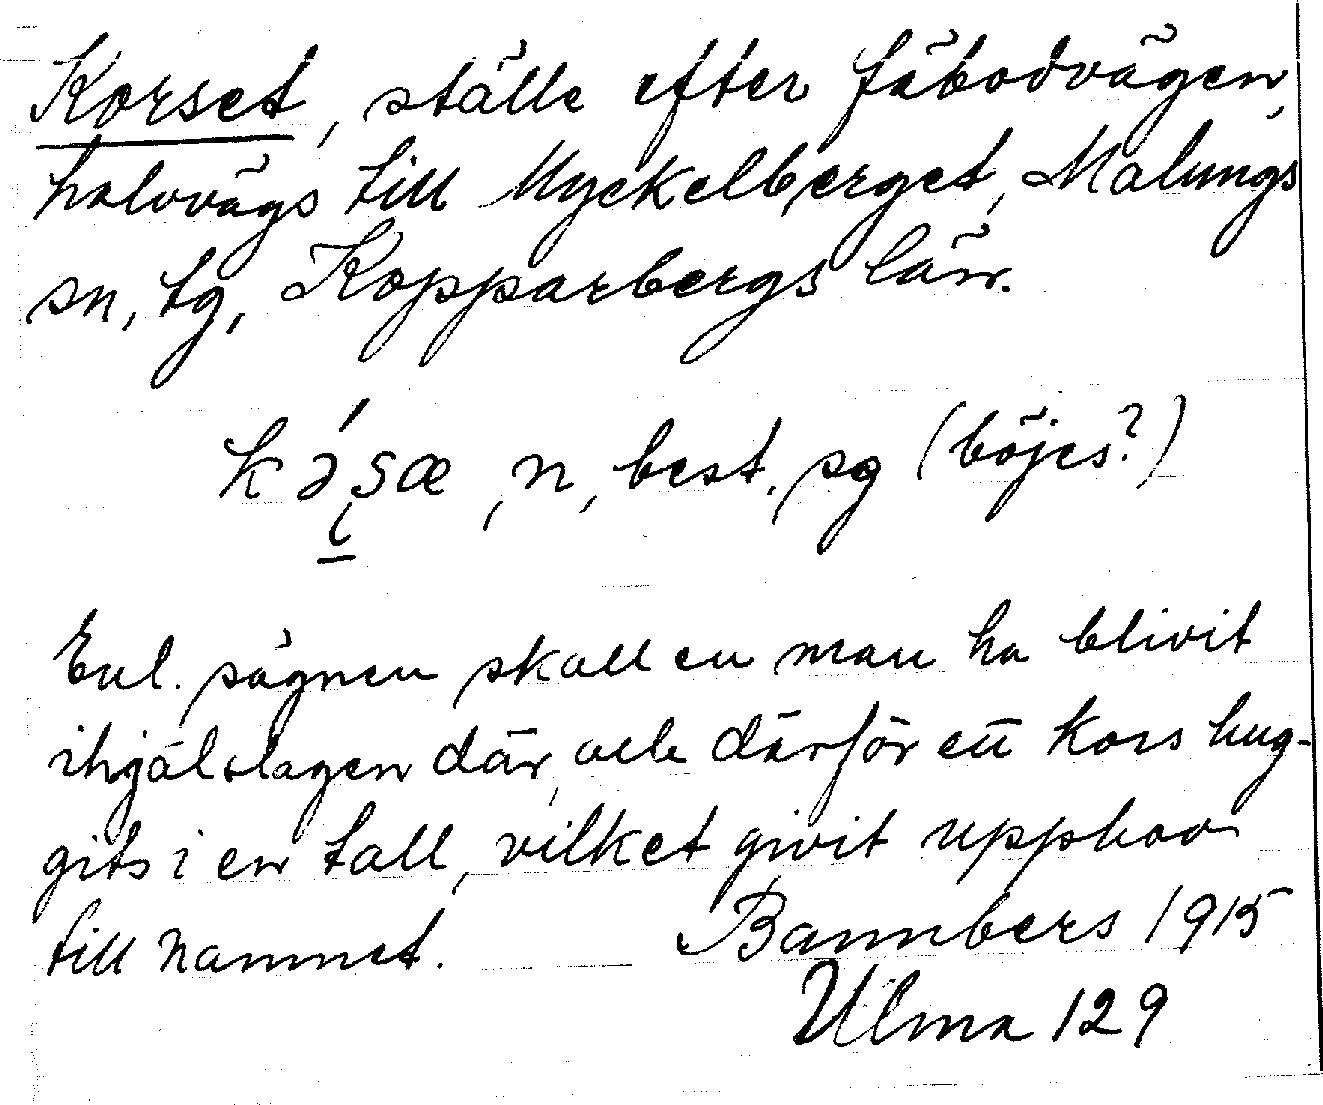 Korset, ställe efter fäbodvägen,
halvvägs till Myckelberget, Malungs
sn, tg, Kopparbergs län.
n, best. sg (böjes?)
Enl. sägnen skall en man ha blivit
ihjälslagen där, och därför ett kors hug-
gits i en tall, vilket givit upphov
till namnet. Bannbers 1915
Ulma 129